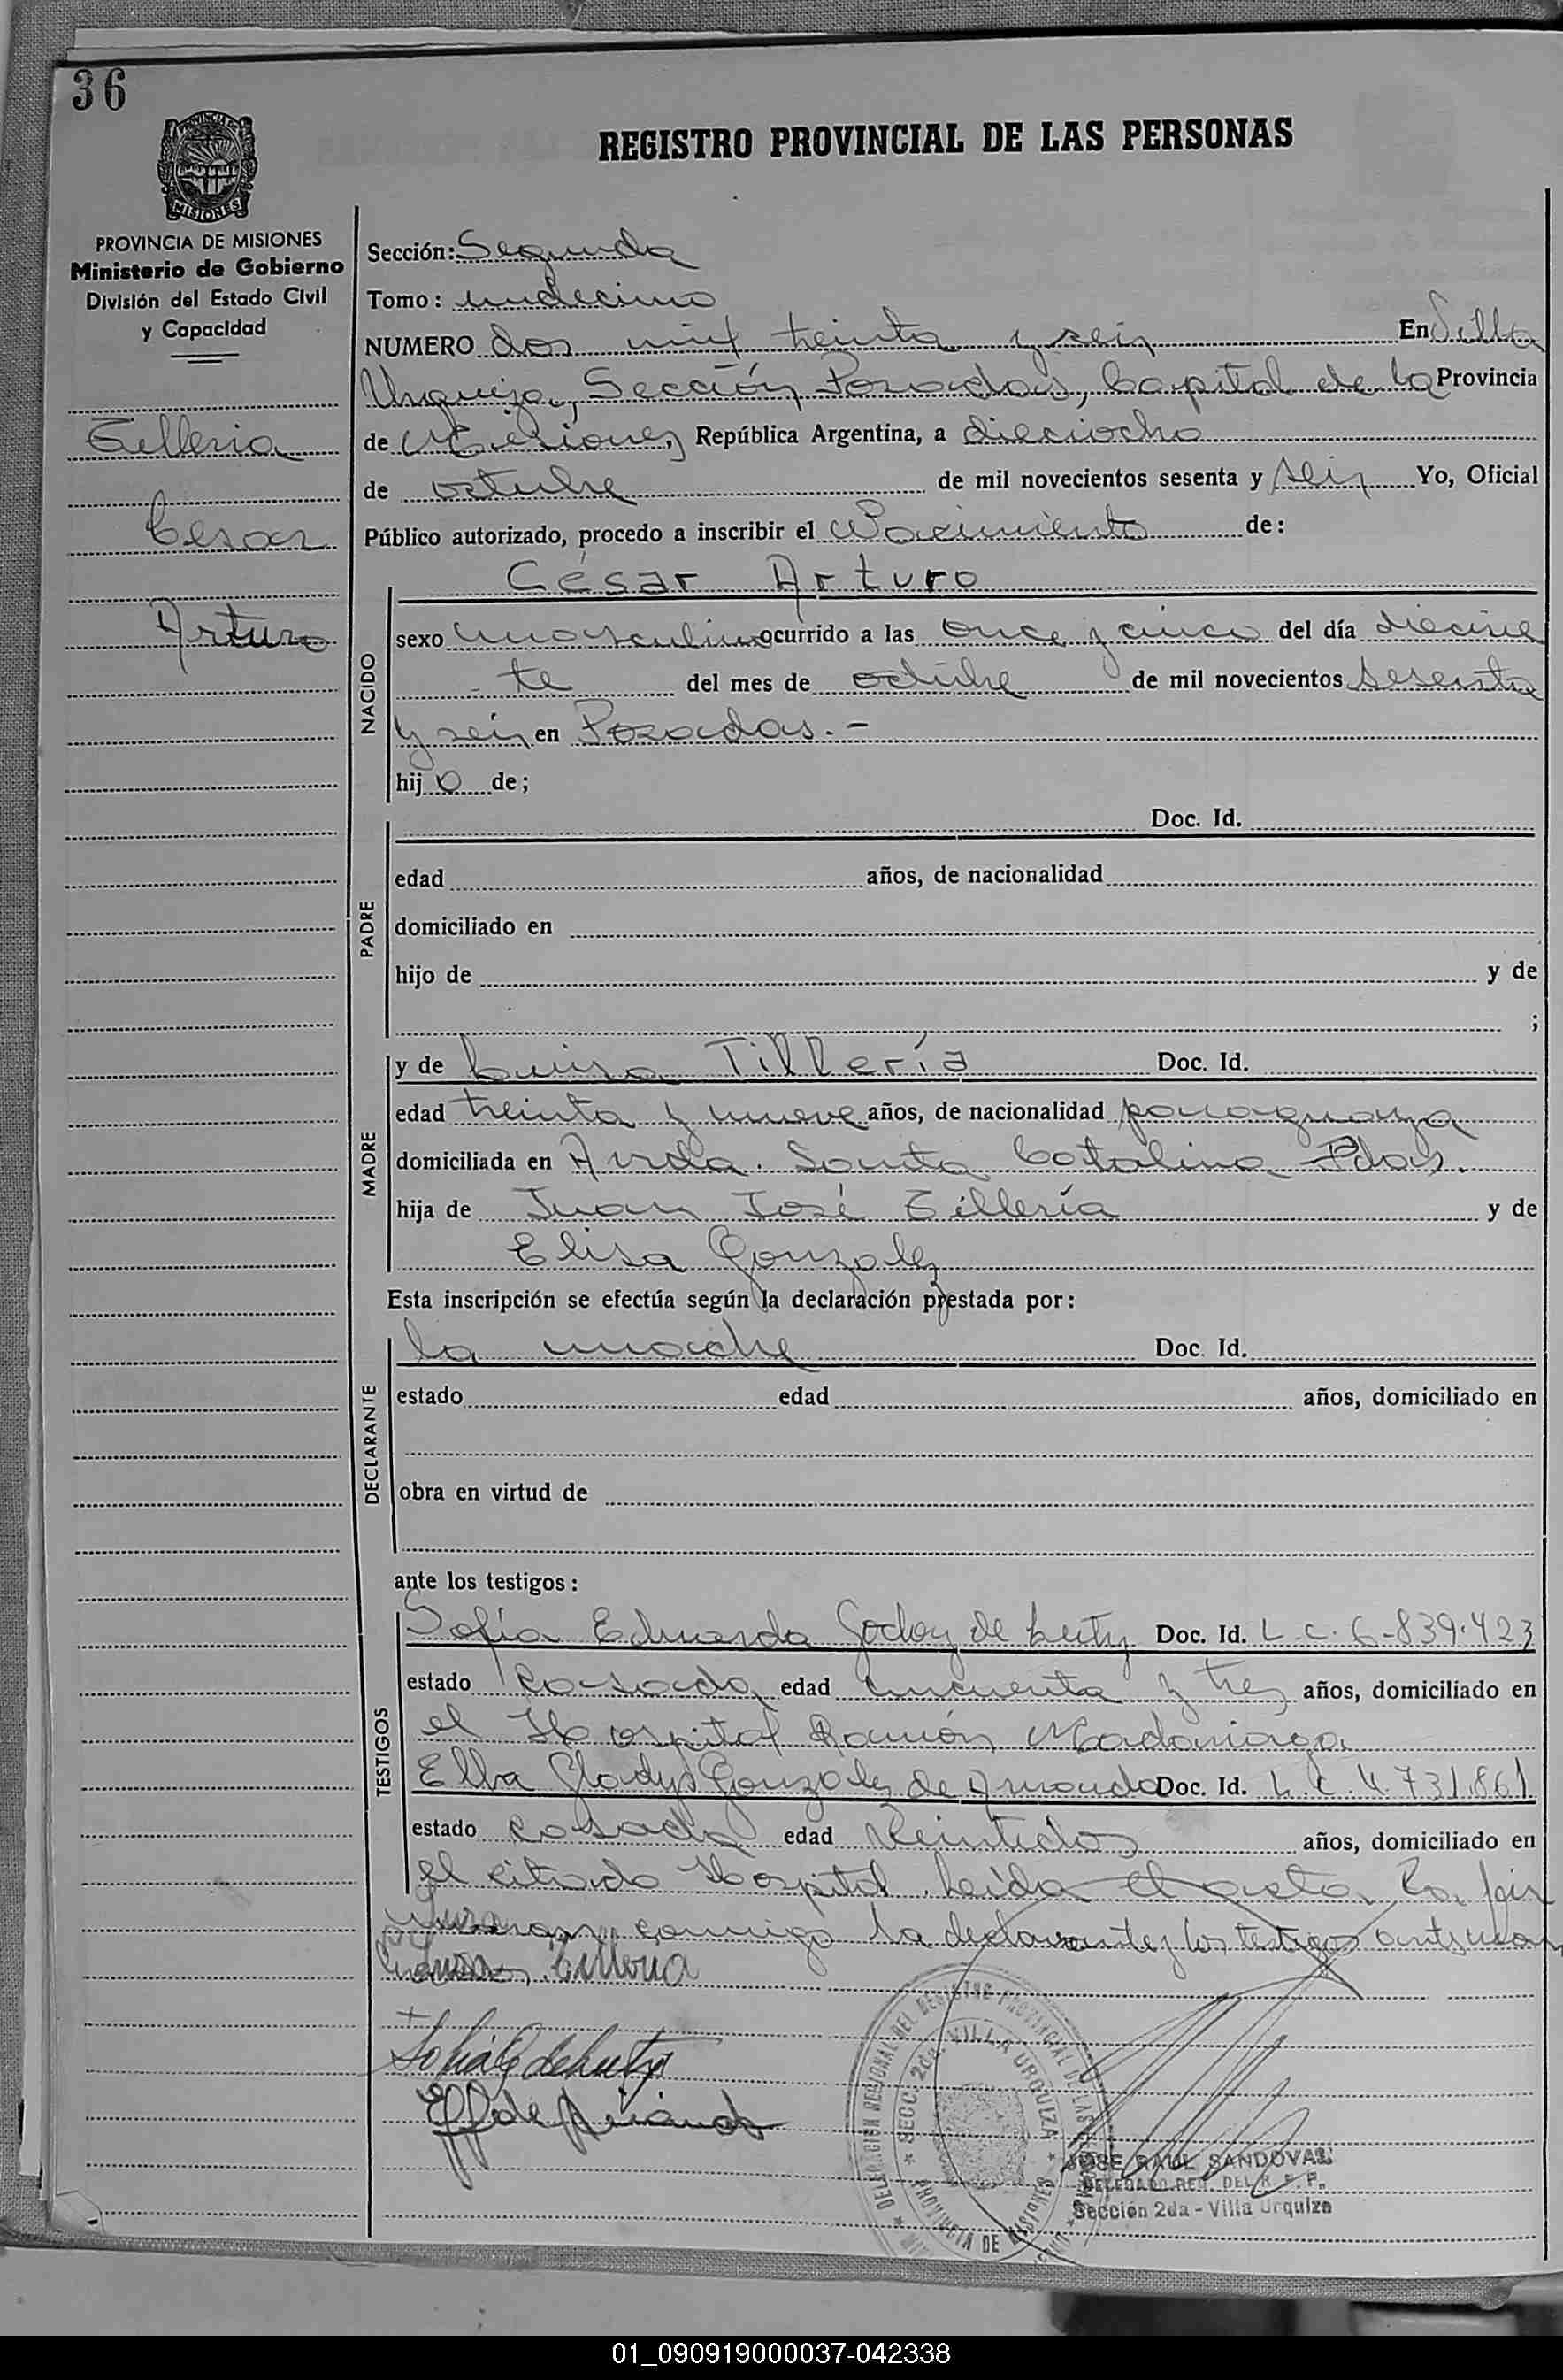 36
REGISTRO PROVINCIAL DE LAS PERSONAS
PROVINCIA DE
MISIONES
PROVINCIA DE MISIONES
Ministerio de Gobierno
División del Estado Civil
y Capacidad
Tilleria
Cesar
Arturo
Sección: Segunda
Tomo: undecimo
NUMERO dos mil treinta y seis En Villa
Urquiza, Sección Posadas, Capital de la Provincia
de Misiones, República Argentina, a dieciocho
de octubre de mil novecientos sesenta y seis Yo, Oficial
Público autorizado, procedo a inscribir el Nacimiento de:
César Arturo
NACIDO
sexo masculino ocurrido a las once y cinco del día diecisie
te del mes de octubre de mil novecientos sesenta
y seis en Posadas.-
hijo de;
PADRE
Doc. Id.
edad años, de nacionalidad
domiciliado en
hijo de y de
;
MADRE
y de Luisa Tillería Doc. Id.
edad treinta y nueve años, de nacionalidad paraguaya
domiciliada en Avda. Santa Catalina Pdas.
hija de Juan José Tillería y de
Elisa Gonzalez
Esta inscripción se efectúa según la declaración prestada por:
DECLARANTE
la madre Doc. Id.
estado edad años, domiciliado en
obra en virtud de
ante los testigos:
TESTIGOS
Sofía Eduarda Godoy de Doc. Id. L.C. 6-839.423
estado casada edad cincuenta y tres años, domiciliado en
el Hospital Ramón Madariaga
Elba Gladys Gonzalez de Doc. Id. L.C. 4.731.861
estado casada edad veintidos años, domiciliado en
el citado Hospital. Leída el acta, la fir
maron conmigo la declarante y los testigos
Luisa Tilleria
DELEGACION REGIONAL DEL REGISTRO PROVINCIAL DE LAS
SECC. 2da. VILLA URQUIZA
PROVINCIA DE MISIONES
JOSE RAUL SANDOVAL
DELEGADO REG. DEL R. P. P.
Sección 2da - Villa Urquiza
01_090919000037-042338